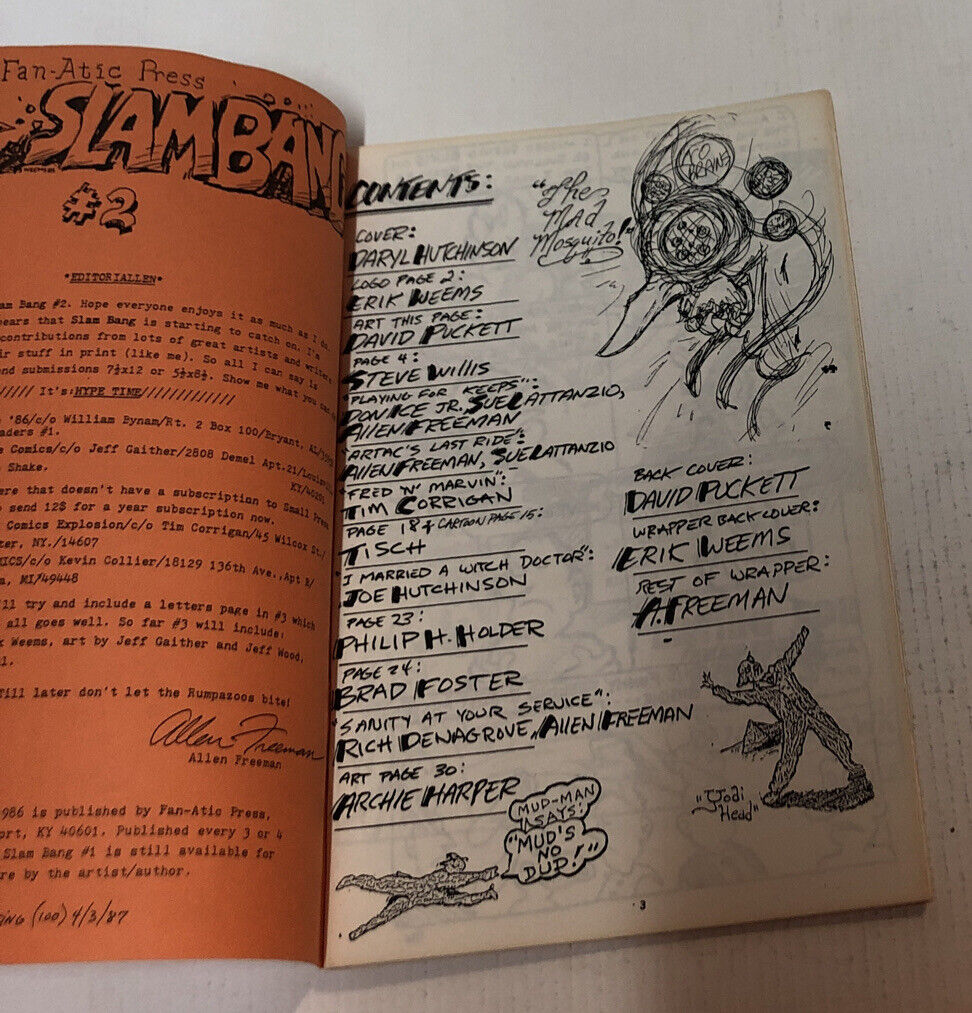 Fan-Atic Press
SLAMBANG
#2
*EDITORIALLEN*
am Bang #2. Hope everyone enjoys it as much as I do.
ears that Slam Bang is starting to catch on. I'm
contributions from lots of great artists and writers
ir stuff in print (like me). So all I can say is
nd submissions 7½x12 or 5½x8½. Show me what you can
///// It's:HYPE TIME/////////////
'86/c/o William Bynam/Rt. 2 Box 100/Bryant, AL/
aders #1.
e Comics/c/o Jeff Gaither/2808 Demel Apt.21/
KY/40201
Shake.
ere that doesn't have a subscription to Small Press
o send 12$ for a year subscription now.
Comics Explosion/c/o Tim Corrigan/45 Wilcox St./
ter, NY./14607
ICS/c/o Kevin Collier/18129 136th Ave.,Apt B/
a, MI/49448
ll try and include a letters page in #3 which
all goes well. So far #3 will include:
k Weems, art by Jeff Gaither and Jeff Wood,
Till later don't let the Rumpazoos bite!
Allen Freeman
Allen Freeman
986 is published by Fan-Atic Press,
ort, KY 40601. Published every 3 or 4
Slam Bang #1 is still available for
re by the artist/author.
(100) 4/3/87
CONTENTS:
"The
MAd
Mosquito!"
COVER:
DARYL HUTCHINSON
LOGO PAGE 2:
ERIK WEEMS
ART THIS PAGE:
DAVID PUCKETT
PAGE 4:
STEVE WILLIS
"PLAYING FOR KEEPS":
DON ICE JR. SUE LATTANZIO,
ALLEN FREEMAN
"ARTAC'S LAST RIDE":
ALLEN FREEMAN, SUE LATTANZIO
"FRED 'N' MARVIN":
TIM CORRIGAN
PAGE 18 & CARTOON PAGE 15:
TISCH
"I MARRIED A WITCH DOCTOR":
JOE HUTCHINSON
PAGE 23:
PHILIP H. HOLDER
PAGE 24:
BRAD FOSTER
"SANITY AT YOUR SERVICE":
RICH DENAGROVE, ALLEN FREEMAN
ART PAGE 30:
ARCHIE HARPER
BACK COVER:
DAVID PUCKETT
WRAPPER BACK COVER:
ERIK WEEMS
REST OF WRAPPER:
A. FREEMAN
MUD-MAN
SAYS:
"MUD'S
NO
DUD!"
"Yodi
Head"
3